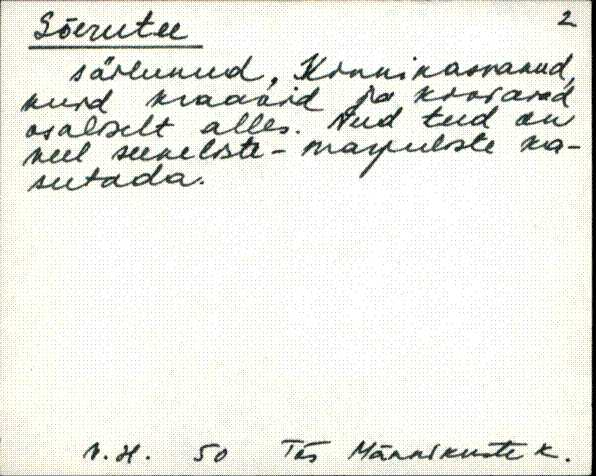 Sõerutee 2
säilunud, Kinnikasvanud,
kuid kraavid ja kruvarad
osaliselt alles. Neid teid on
veel seeneliste-marjuliste ka-
sutada.
V.H. 50 Tõs Männikuste k.